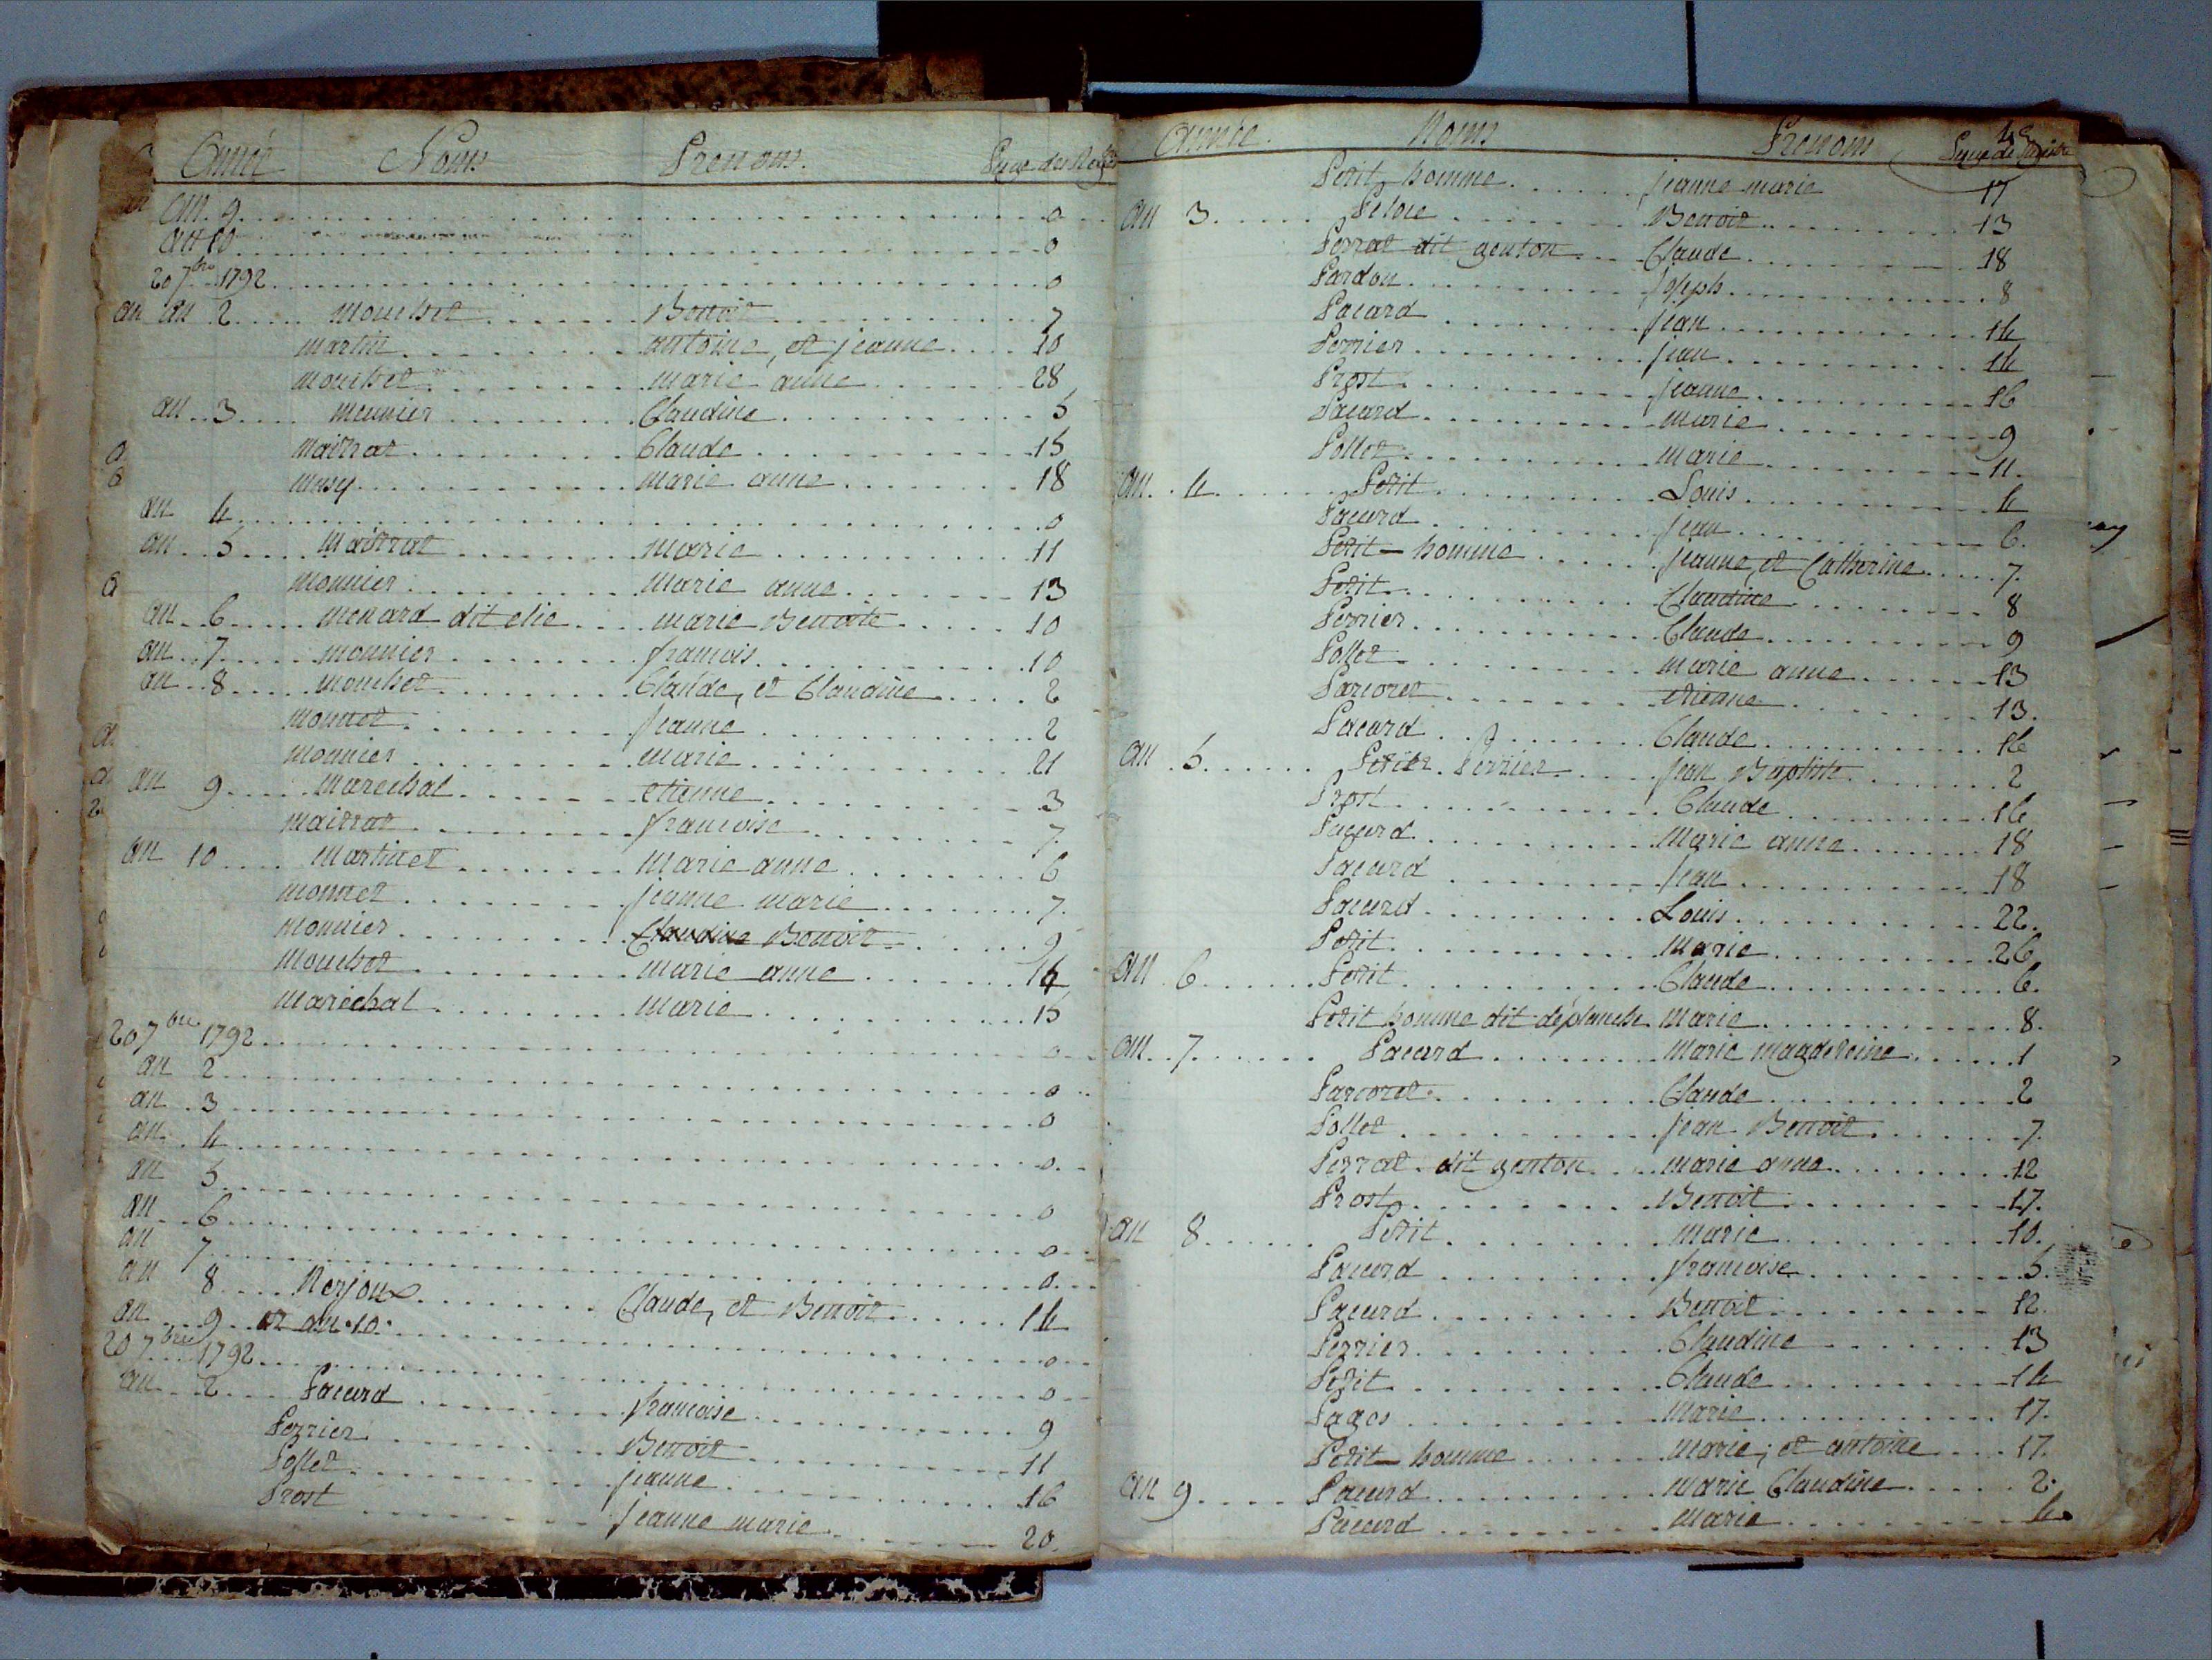 Année Noms Prenoms. Page des Reg
an 9 0
an 10 0
20 7bre 1792 0
an 2 mouchet Benoit 7
martin antoine, et jeanne 10
mouchet marie anne 28
an 3 meunier Claudine 5
maitrat Claude 15
musy marie anne 18
an 4 0
an 5 maitrat marie 11
monnier marie anne 13
an 6 menard dit elie marie Benoite 10
an 7 monnier francois 10
an 8 mouchet Claude, et Claudine 2
monnet jeanne 2
monnier marie 21
an 9 marechal etienne 3
maitrat francoise 7
an 10 martinet marie anne 6
monnet jeanne marie 7
monnier Benoit 9
mouchet marie anne 14
marechal marie 15
20 7bre 1792 0
an 2 0
an 3 0
an 4 0
an 5 0
an 6 0
an 7 0
an 8 Nerjoux Claude, et Benoit 14
an 9 et an 10 0
20 7bre 1792 0
an 2 Pacard francoise 9
Perrier Benoit 11
Pollet jeanne 16
Prost jeanne marie 20
Année. Noms Prenoms Page de Registre
Petit homme jeanne marie 17
an 3 Benoit 13
Perrat dit genton Claude 18
Pardon joseph 8
Pacard jean 14
Perrier jean 14
Prost jeanne 16
Pacard marie 9
Pollet marie 11
an 4 Petit Louis 4
Pacard jean 6
Petit-homme jeanne, et Catherine 7
Petit Claudine 8
Perrier Claude 9
Pollet marie anne 13
Parioret etienne 13
Pacard Claude 16
an 5 Perrier jean Baptiste 2
Prost Claude 16
Pacard marie anne 18
Pacard jean 18
Pacard Louis 22
Petit marie 26
an 6 Petit Claude 6
Petit homme dit deplanche marie 8
an 7 Pacard marie magdeleine 1
Parioret Claude 2
Pollet jean Benoit 7
Perrat dit genton marie anne 12
Prost Benoit 17
an 8 Petit marie 10
Pacard francoise 5
Pacard Benoit 12
Perrier Claudine 13
Petit Claude 14
Pages marie 17
Petit-homme marie, et antoine 17
an 9 Pacard marie Claudine 2
Pacard marie 4